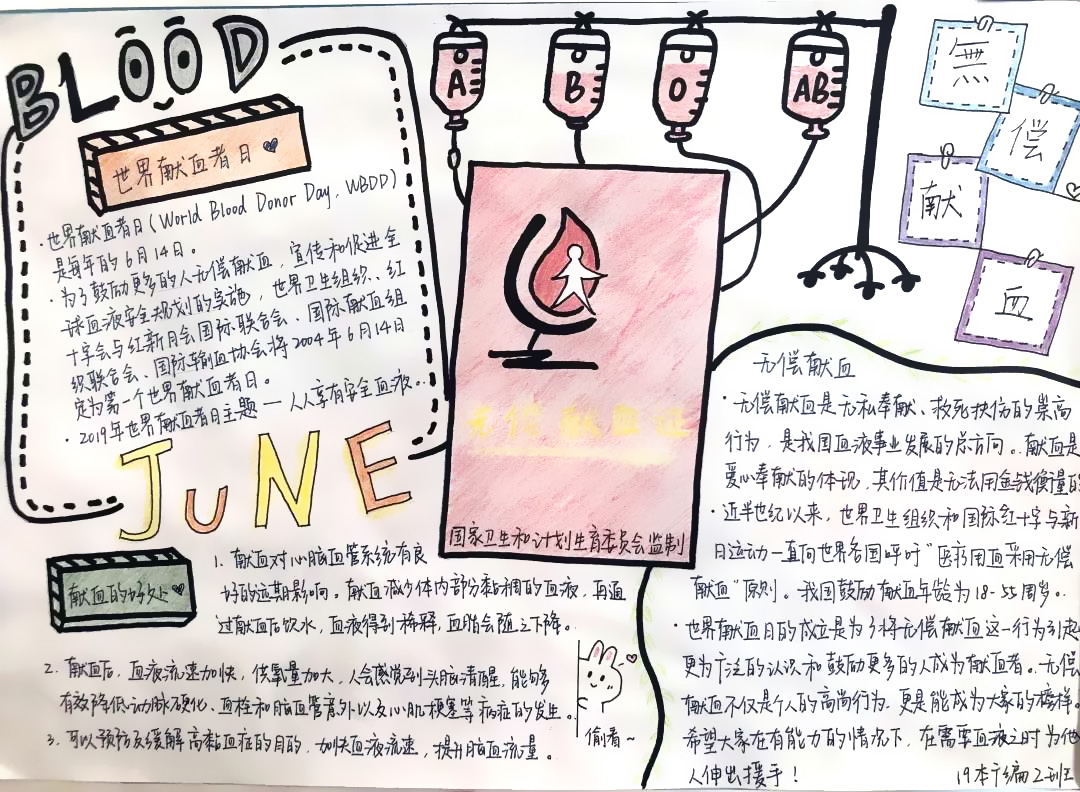 BLOOD
世界献血者日
·世界献血者日(World Blood Donor Day, WBDD)
是每年的6月14日。
·为了鼓励更多的人无偿献血,宣传和促进全
球血液安全规划的实施,世界卫生组织、红
十字会与红新月会国际联合会、国际献血组
织联合会、国际输血协会将2004年6月14日
定为第一个世界献血者日。
·2019年世界献血者日主题 — 人人享有安全血液。
JUNE
A
B
O
AB
無
偿
献
血
无偿献血证
国家卫生和计划生育委员会监制
献血的好处
1. 献血对心脑血管系统有良
好的远期影响。献血减少体内部分黏稠的血液,再通
过献血后饮水,血液得到稀释,血脂会随之下降。
2. 献血后,血液流速加快,供氧量加大,人会感觉到头脑清醒,能够
有效降低动脉硬化、血栓和脑血管意外以及心肌梗塞等病症的发生。
3. 可以预防及缓解高黏血症的目的,加快血液流速,提升脑血流量。
偷看~
无偿献血
·无偿献血是无私奉献、救死扶伤的崇高
行为,是我国血液事业发展的总方向。献血是
爱心奉献的体现,其价值是无法用金钱衡量的
·近半世纪以来,世界卫生组织和国际红十字与新
日运动一直向世界各国呼吁“医疗用血采用无偿
献血”原则。我国鼓励献血年龄为18-55周岁。
·世界献血日的成立是为了将无偿献血这一行为引起
更为广泛的认识和鼓励更多的人成为献血者。无偿
献血不仅是个人的高尚行为,更是能成为大家的榜样。
希望大家在有能力的情况下,在需要血液之时为他
人伸出援手!
19本广编2班